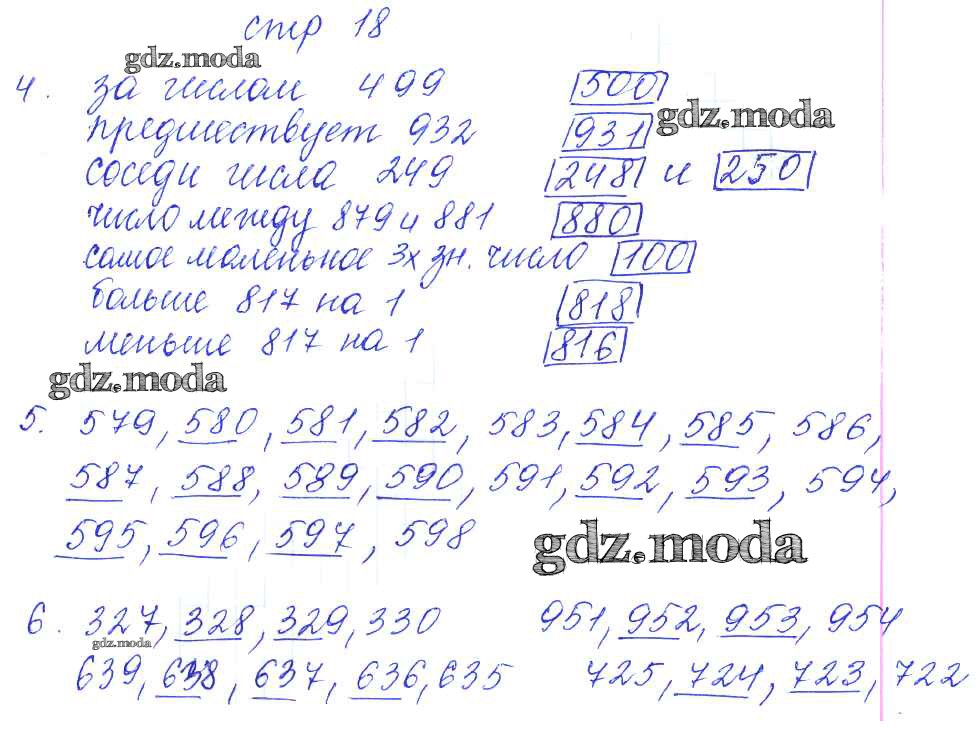 стр 18
gdz.moda
4. за числом 499 500
gdz.moda
предшествует 932 931
соседи числа 249 248 и 250
число между 879 и 881 880
самое маленькое 3х зн. число 100
больше 817 на 1 818
меньше 817 на 1 816
gdz.moda
5. 579, 580, 581, 582, 583, 584, 585, 586,
587, 588, 589, 590, 591, 592, 593, 594,
595, 596, 597, 598
gdz.moda
6. 327, 328, 329, 330 951, 952, 953, 954
gdz.moda
639, 638, 637, 636, 635 725, 724, 723, 722